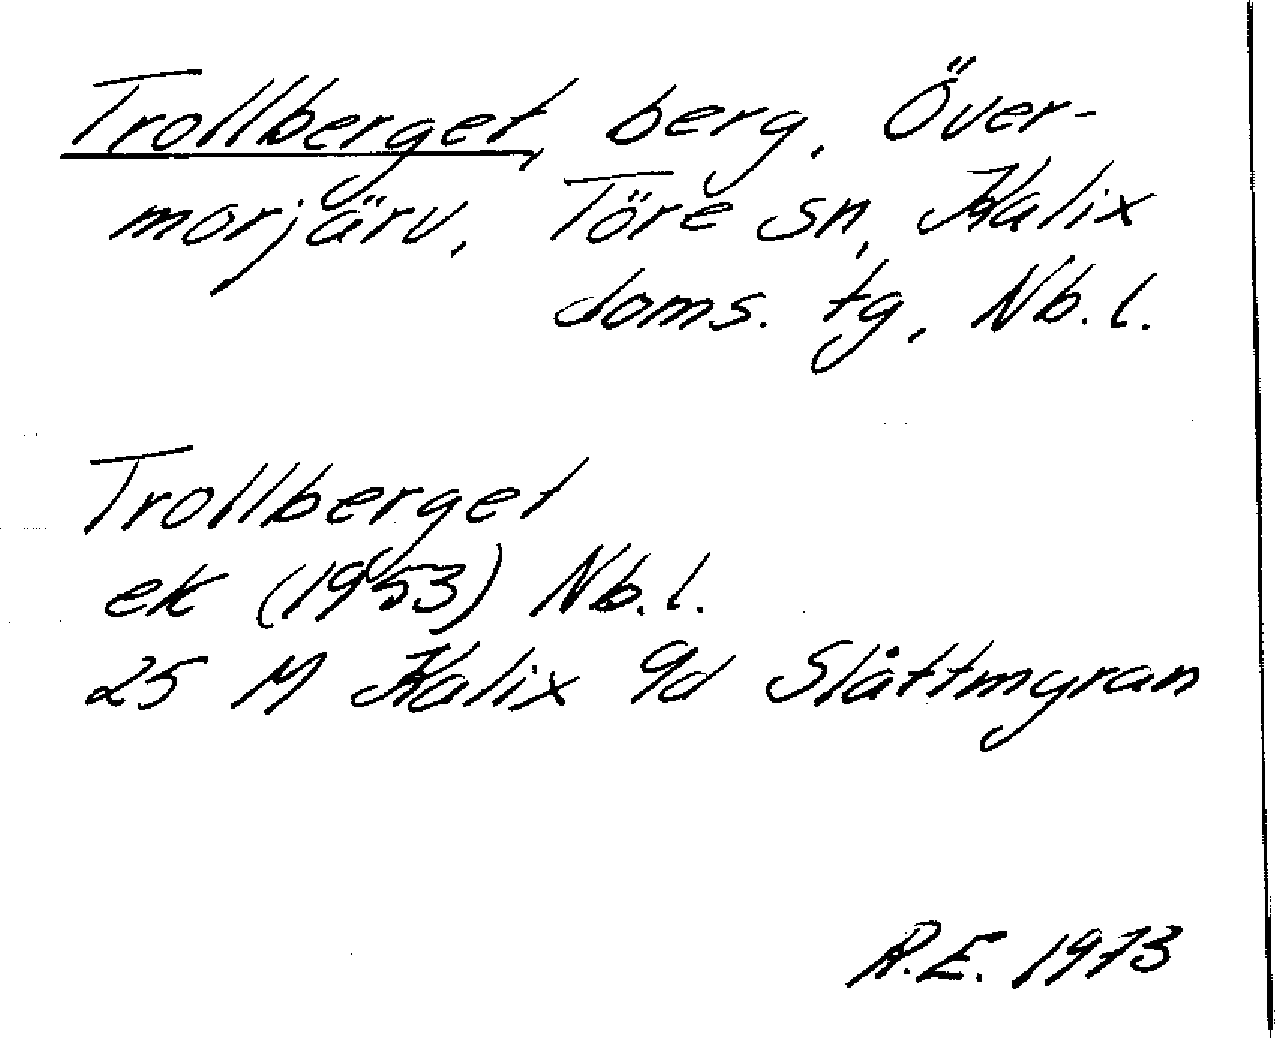 Trollberget, berg, Över-
morjärv, Töre sn, Kalix
doms. tg, Nb. l.
Trollberget
ek (1953) Nb. l.
25 M Kalix 9d Slåttmyran
R.E. 1973